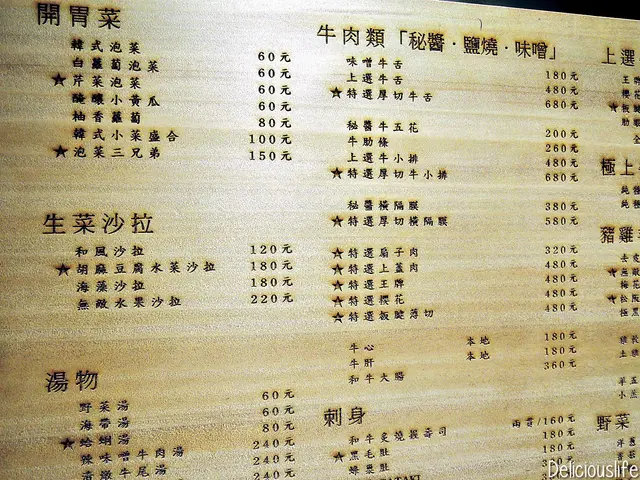 開胃菜
韓式泡菜 60元
白蘿蔔泡菜 60元
★芹菜泡菜 60元
醃釀小黃瓜 60元
柚香蘿蔔 80元
韓式小菜盛合 100元
★泡菜三兄弟 150元
生菜沙拉
和風沙拉 120元
★胡麻豆腐水菜沙拉 180元
海藻沙拉 180元
無敵水果沙拉 220元
湯物
野菜湯 60元
海帶湯 60元
★蛤蜊湯 80元
辣味噌牛肉湯 240元
清燉牛尾湯 240元
牛肉類「秘醬·鹽燒·味噌」
味噌牛舌 180元
上選牛舌 480元
★特選厚切牛舌 680元
秘醬牛五花 200元
牛肋條 260元
上選牛小排 480元
★特選厚切牛小排 680元
秘醬橫隔膜 380元
★特選厚切橫隔膜 580元
★特選扇子肉 320元
★特選上蓋肉 480元
★特選王牌 480元
★特選櫻花 480元
★特選板腱薄切 480元
牛心 本地 180元
牛肝 本地 180元
和牛大腸 360元
刺身
和牛炙燒握壽司 兩貫/160元
★黑毛肚 180元
蜂巢肚 180元
上選
極上
豬雞
野菜
Deliciouslife